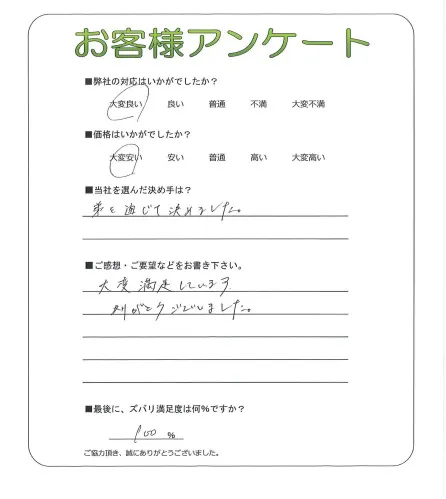 お客様アンケート
■弊社の対応はいかがでしたか？
大変良い 良い 普通 不満 大変不満
■価格はいかがでしたか？
大変安い 安い 普通 高い 大変高い
■当社を選んだ決め手は？
弟を通じて決めました。
■ご感想・ご要望などをお書き下さい。
大変満足しています
ありがとうございました。
■最後に、ズバリ満足度は何％ですか？
100 ％
ご協力頂き、誠にありがとうございました。